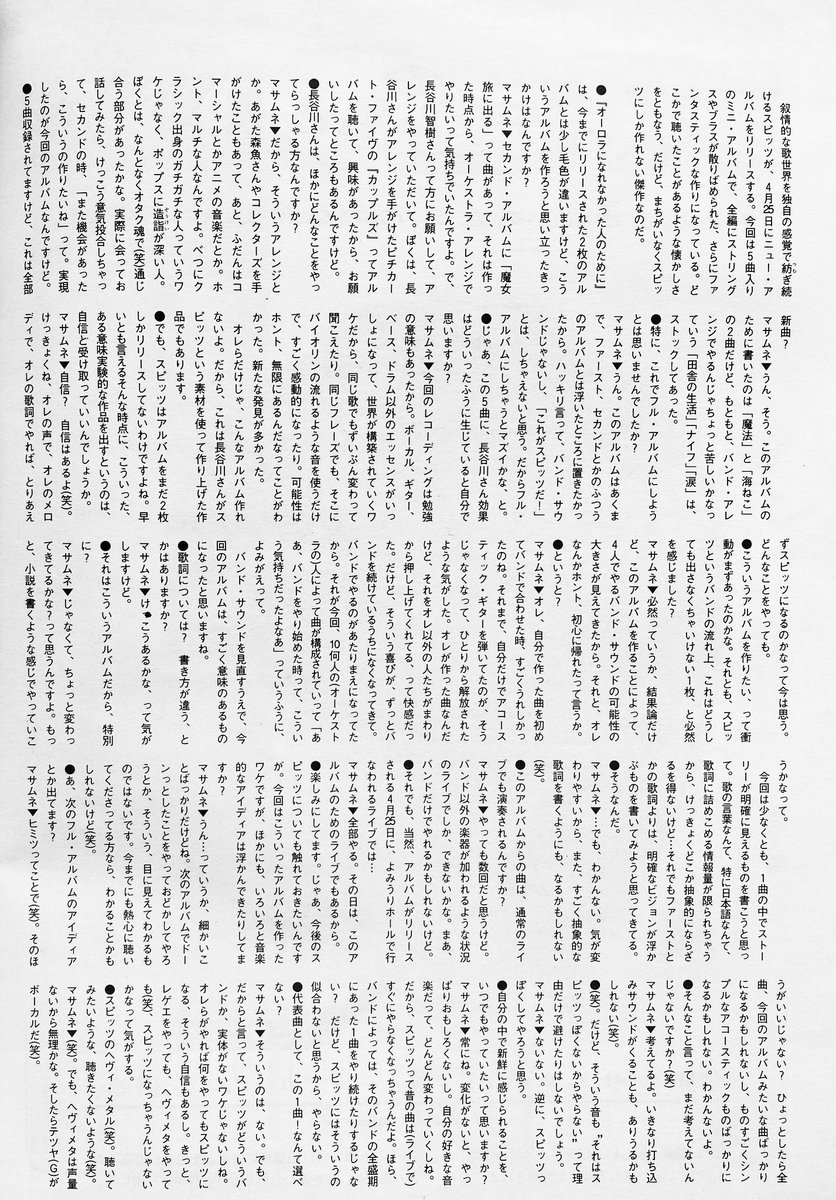 叙情的な歌世界を独自の感覚で紡ぎ続
けるスピッツが、4月25日にニュー・ア
ルバムをリリースする。今回は5曲入り
のミニ・アルバムで、全編にストリング
スやブラスが散りばめられた、さらにファ
ンタスティックな作りになっている。ど
こかで聴いたことがあるような懐かしさ
をともなう、だけど、まちがいなくスピッ
ツにしか作れない傑作なのだ。
●『オーロラになれなかった人のために』
は、今までにリリースされた2枚のアル
バムとは少し毛色が違いますけど、こう
いうアルバムを作ろうと思い立ったきっ
かけはなんですか？
マサムネ▼セカンド・アルバムに「魔女
旅に出る」って曲があって、それは作っ
た時点から、オーケストラ・アレンジで
やりたいって気持ちでいたんですよ。で、
長谷川智樹さんって方にお願いして、ア
レンジをやっていただいて。ぼくは、長
谷川さんがアレンジを手がけたピチカー
ト・ファイヴの『カップルズ』ってアル
バムを聴いて、興味があったから、お願
いしたってところもあるんですけど。
●長谷川さんは、ほかにどんなことをやっ
てらっしゃる方なんですか？
マサムネ▼だから、そういうアレンジと
か。あがた森魚さんやコレクターズを手
がけたこともあって、あと、ふだんはコ
マーシャルとかアニメの音楽だとか。ホ
ント、マルチな人なんですよ。べつにク
ラシック出身のガチガチな人っていうワ
ケじゃなく、ポップスに造詣が深い人。
ぼくとは、なんとなくオタク魂で(笑)通じ
合う部分があったかな。実際に会ってお
話してみたら、けっこう意気投合しちゃっ
て、セカンドの時、「また機会があった
ら、こういうの作りたいね」って。実現
したのが今回のアルバムなんですけど。
●5曲収録されてますけど、これは全部
新曲？
マサムネ▼うん、そう。このアルバムの
ために書いたのは「魔法」と「海ねこ」
の2曲だけど、もともと、バンド・アレ
ンジでやるんじゃちょっと苦しいかなっ
ていう「田舎の生活」「ナイフ」「涙」は、
ストックしてあった。
●特に、これでフル・アルバムにしよう
とは思いませんでしたか？
マサムネ▼うん。このアルバムはあくま
で、ファースト、セカンドとかのふつう
のアルバムとは浮いたところに置きたかっ
たから。ハッキリ言って、バンド・サウ
ンドじゃないし、「これがスピッツだ！」
とは、しちゃえないと思う。だからフル・
アルバムにしちゃうとマズイかな、と。
●じゃあ、この5曲に、長谷川さん効果
はどういったふうに生じていると自分で
思いますか？
マサムネ▼今回のレコーディングは勉強
の意味もあったから。ボーカル、ギター、
ベース、ドラム以外のエッセンスがいっ
しょになって、世界が構築されていくワ
ケだから、同じ歌でもずいぶん変わって
聞こえたり。同じフレーズでも、そこに
バイオリンの流れるような音を使うだけ
で、すごく感動的になったり。可能性は
ホント、無限にあるんだなってことがわ
かった。新たな発見が多かった。
　オレらだけじゃ、こんなアルバム作れ
ないよ。だから、これは長谷川さんがス
ピッツという素材を使って作り上げた作
品でもあります。
●でも、スピッツはアルバムをまだ2枚
しかリリースしてないわけですよね。早
いとも言えるそんな時点に、こういった、
ある意味実験的な作品を出すというのは、
自信と受け取っていいんでしょうか。
マサムネ▼自信？　自信はあるよ(笑)。
けっきょくね、オレの声で、オレのメロ
ディで、オレの歌詞でやれば、とりあえ
ずスピッツになるのかなって今は思う。
どんなことをやっても。
●こういうアルバムを作りたい、って衝
動がまずあったのかな。それとも、スピッ
ツというバンドの流れ上、これはどうし
ても出さなくちゃいけない1枚、と必然
を感じました？
マサムネ▼必然っていうか、結果論だけ
ど、このアルバムを作ることによって、
4人でやるバンド・サウンドの可能性の
大きさが見えてきたから。それと、オレ
なんかホント、初心に帰れたって言うか。
●というと？
マサムネ▼オレ、自分で作った曲を初め
てバンドで合わせた時、すごくうれしかっ
たのね。それまで、自分だけでアコース
ティック・ギターを弾いてたのが、そう
じゃなくなって、ひとりから解放された
ような気がした。オレが作った曲なんだ
けど、それをオレ以外の人たちがまわり
から押し上げてくれてる、って快感だっ
た。だけど、そういう喜びが、ずっとバ
ンドを続けているうちになくなってきて。
バンドでやるのがあたりまえになってた
から。それが今回、10何人の(オーケスト
ラの)人によって曲が構成されていって「あ
あ、バンドをやり始めた時って、こうい
う気持ちだったよなあ」っていうふうに、
よみがえって。
　バンド・サウンドを見直すうえで、今
回のアルバムは、すごく意味のあるもの
になったと思いますね。
●歌詞については？　書き方が違う、と
かはありますか？
マサムネ▼けっこうあるかな、って気が
しますけど。
●それはこういうアルバムだから、特別
に？
マサムネ▼じゃなくて、ちょっと変わっ
てきてるかな？って思うんですよ。もっ
と、小説を書くような感じでやっていこ
うかなって。
　今回は少なくとも、1曲の中でストー
リーが明確に見えるものを書こうと思っ
て。歌の言葉なんて、特に日本語なんて、
歌詞に詰めこめる情報量が限られちゃう
から、けっきょくどこか抽象的にならざ
るを得ないけど…それでもファーストと
かの歌詞よりは、明確なビジョンが浮か
ぶものを書いてみようと思ってきてる。
●そうなんだ。
マサムネ▼…でも、わかんない。気が変
わりやすいから、また、すごく抽象的な
歌詞を書くようにも、なるかもしれない
(笑)。
●このアルバムからの曲は、通常のライ
ブでも演奏されるんですか？
マサムネ▼やっても数回だと思うけど。
バンド以外の楽器が加われるような状況
のライブでしか、できないかな。まあ、
バンドだけでやれるかもしれないけど。
●それでも、当然、アルバムがリリース
される4月25日に、よみうりホールで行
なわれるライブでは…
マサムネ▼全部やる。その日は、このア
ルバムのためのライブでもあるから。
●楽しみにしてます。じゃあ、今後のス
ピッツについても触れておきたいんです
が。今回はこういったアルバムを作った
ワケですが、ほかにも、いろいろと音楽
的なアイディアは浮かんできたりしてま
すか？
マサムネ▼うん…っていうか、細かいこ
とばっかりだけどね。次のアルバムでドー
ンっとしたことをやっておどかしてやろ
うとか、そういう、目に見えてわかるも
のではないです。今までにも熱心に聴い
てくださってる方なら、わかることかも
しれないけど(笑)。
●あ、次のフル・アルバムのアイディア
とか出てます？
マサムネ▼ヒミツってことで(笑)。そのほ
うがいいじゃない？　ひょっとしたら全
曲、今回のアルバムみたいな曲ばっかり
になるかもしれないし、ものすごくシン
プルなアコースティックものばっかりに
なるかもしれない。わかんないよ。
●そんなこと言って、まだ考えてないん
じゃないですか？(笑)
マサムネ▼考えてるよ。いきなり打ち込
みサウンドがくることも、ありうるかも
しれない(笑)。
●(笑)。だけど、そういう音も〝それはス
ピッツっぽくないからやらない〟って理
由だけで避けたりはしないでしょう。
マサムネ▼ないない。逆に、スピッツっ
ぽくしてやろうと思う。
●自分の中で新鮮に感じられることを、
いつでもやっていたいって思いますか？
マサムネ▼常にね。変化がないと、やっ
ぱりおもしろくないし。自分の好きな音
楽だって、どんどん変わっていくしね。
だから、スピッツって昔の曲は(ライブで)
すぐにやらなくなっちゃうんだよ。ほら、
バンドによっては、そのバンドの全盛期
にあった1曲をやり続けたりするじゃな
い？　だけど、スピッツにはそういうの
似合わないと思うから、やらない。
●代表曲として、この1曲！なんて選べ
ない？
マサムネ▼そういうのは、ない。でも、
だからと言って、スピッツがどういうバ
ンドか、実体がないワケじゃないしね。
オレらがやれば何をやってもスピッツに
なる、そういう自信もあるし。きっと、
レゲエをやっても、ヘヴィメタをやって
も(笑)、スピッツになっちゃうんじゃない
かなって気がする。
●スピッツのヘヴィ・メタル(笑)。聴いて
みたいような、聴きたくないような(笑)。
マサムネ▼(笑)。でも、ヘヴィメタは声量
ないから無理かな。そしたらテツヤ(G)が
ボーカルだ(笑)。